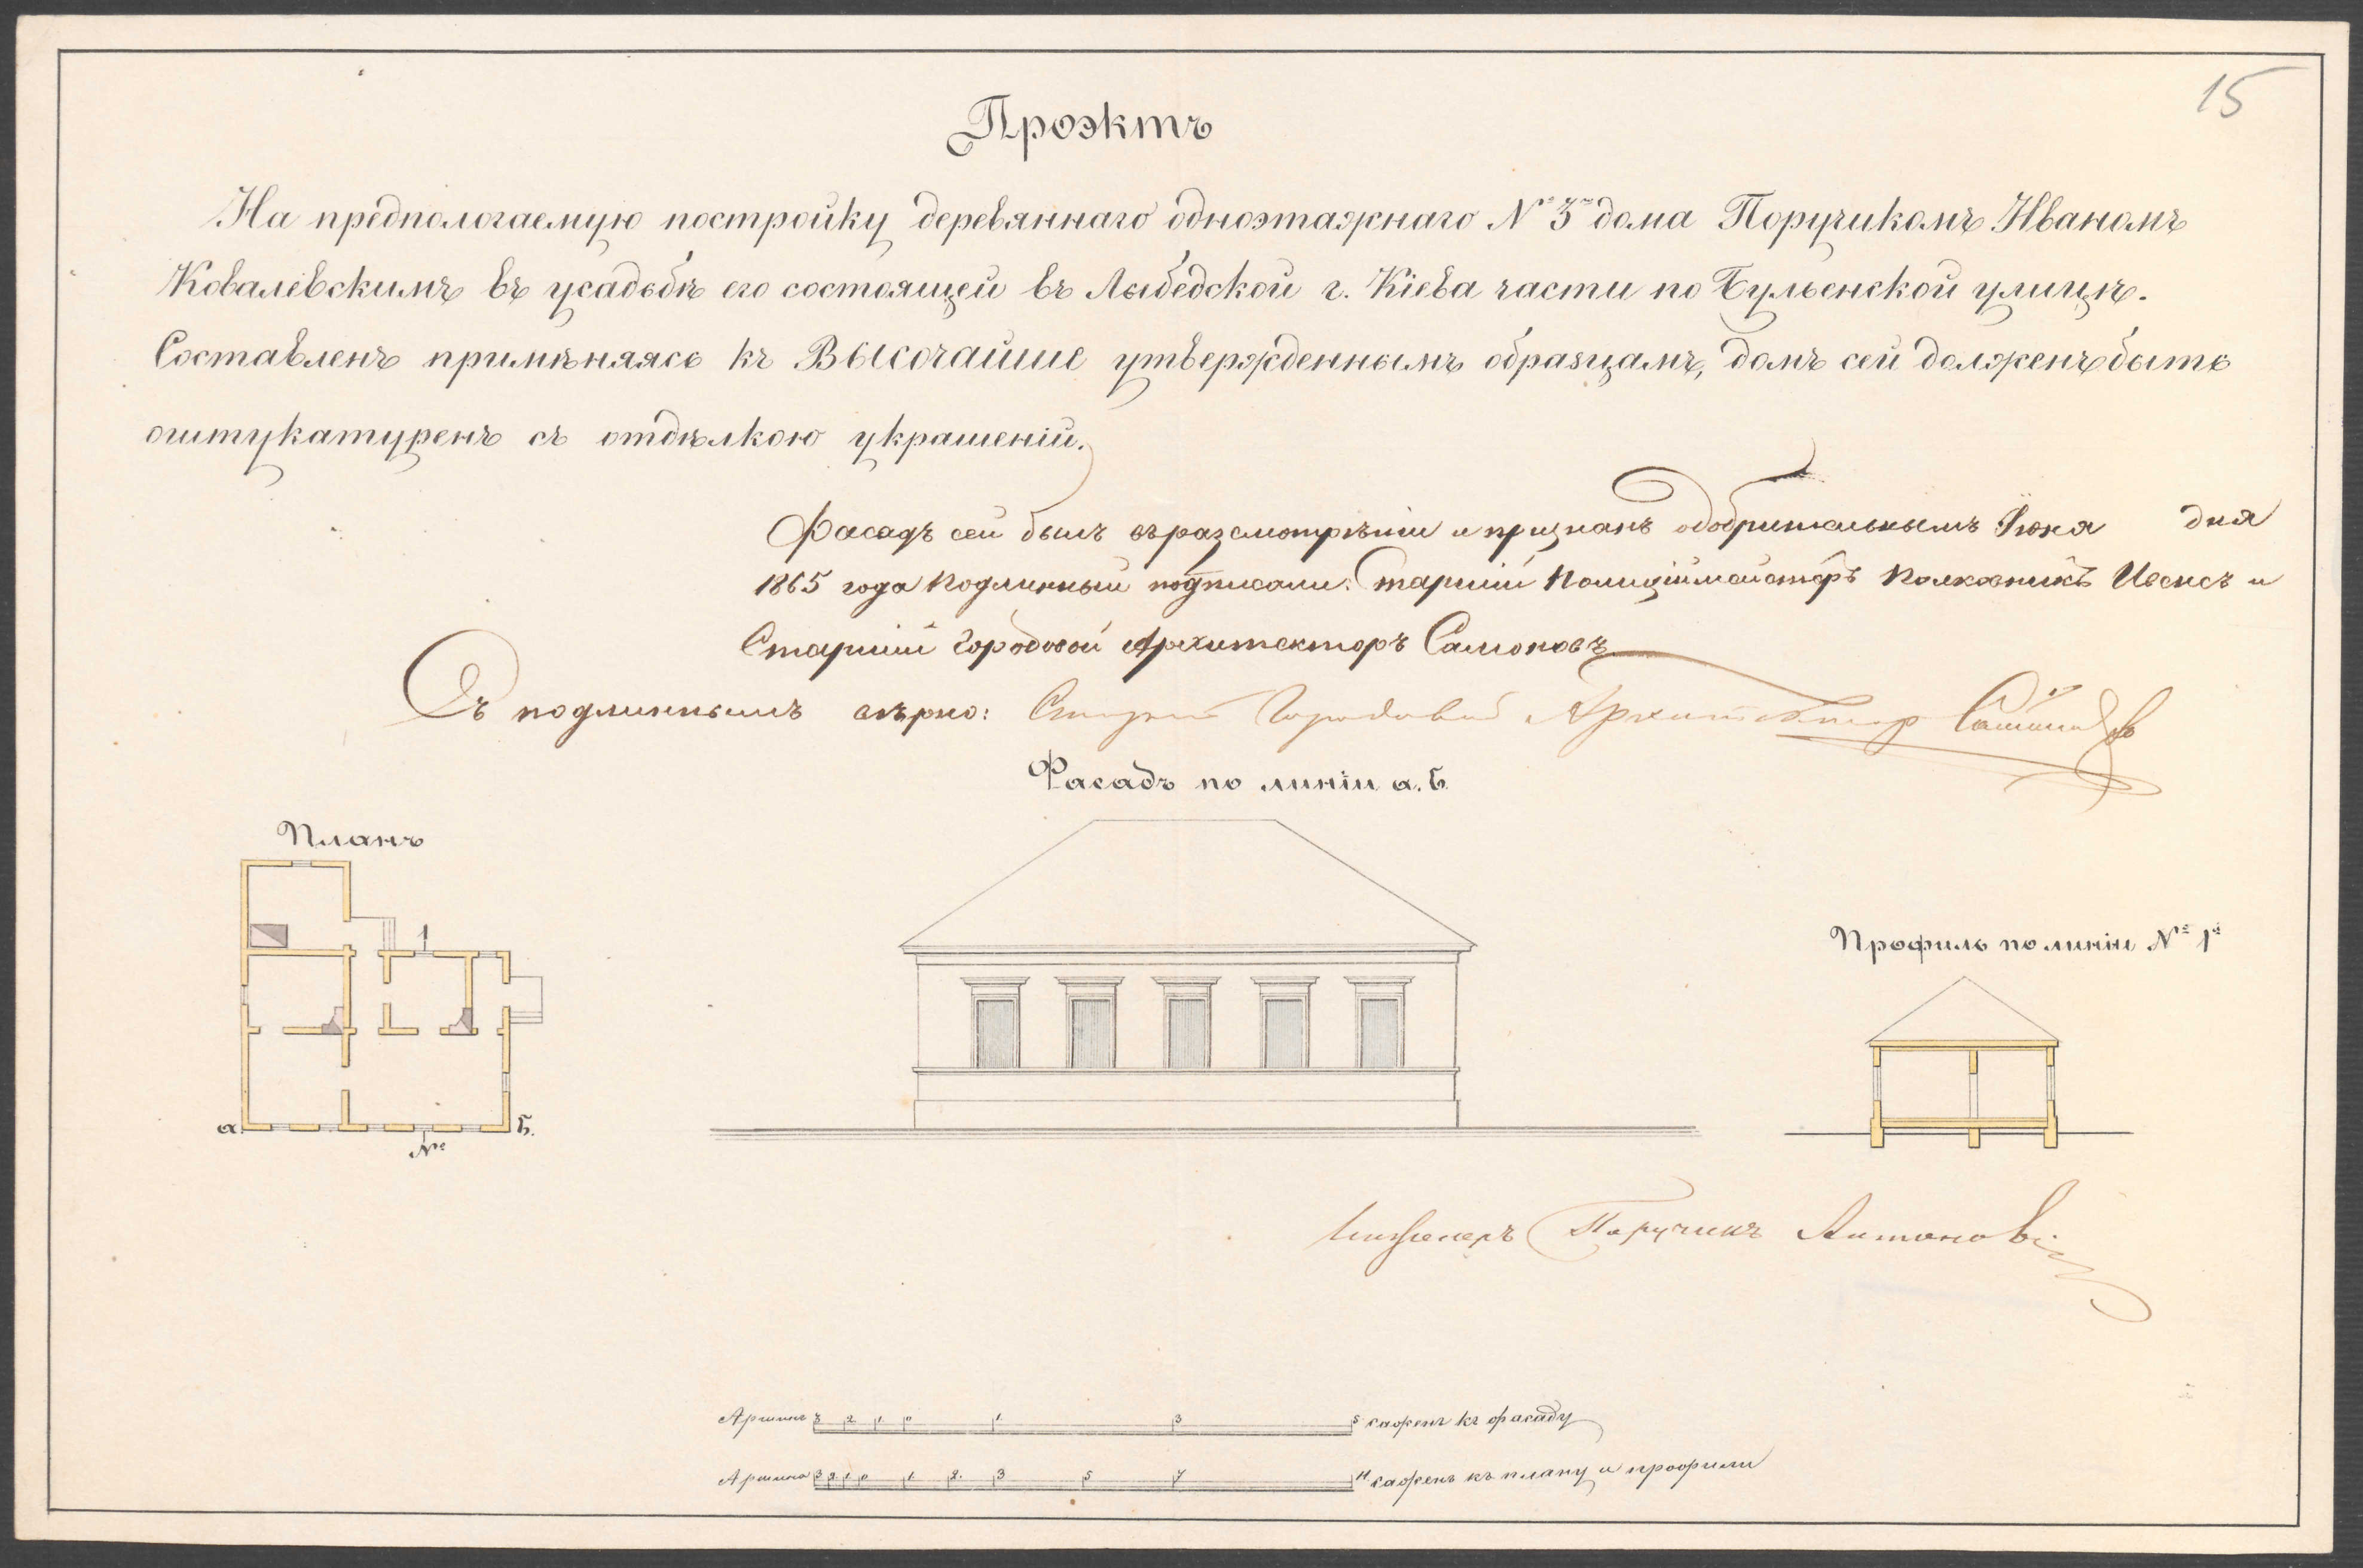 15
Проэктъ
На предпологаемую постройку деревяннаго одноэтажнаго № 3го дома Поручикомъ Иваномъ
Ковалевскимъ въ усадьбѣ его состоящей въ Лыбедской г. Кіева части по Бульенской улицѣ.
Составленъ примѣняясь къ Высочайше утвержденнымъ образцамъ, домъ сей долженъ быть
оштукатуренъ съ отдѣлкою украшеній.
Фасадъ сей былъ въ разсмотрѣніи и признанъ одобрительнымъ Іюня дня
1865 года Подлинный подписали: Старшій Полиціймейстеръ Полковникъ и
Старшій Городовой Архитекторъ
Съ подлиннымъ вѣрно: Старшій Городовой Архитекторъ
Фасадъ по линіи а. б.
Планъ
1
а. б.
№
Профиль по линіи № 1й
Инженеръ Поручикъ Антонов
Аршинъ 3 2 1 0 1 3 5 сажень къ фасаду
Аршина 3 2 1 0 1 2. 3 5 7 11 сажень къ плану и профили